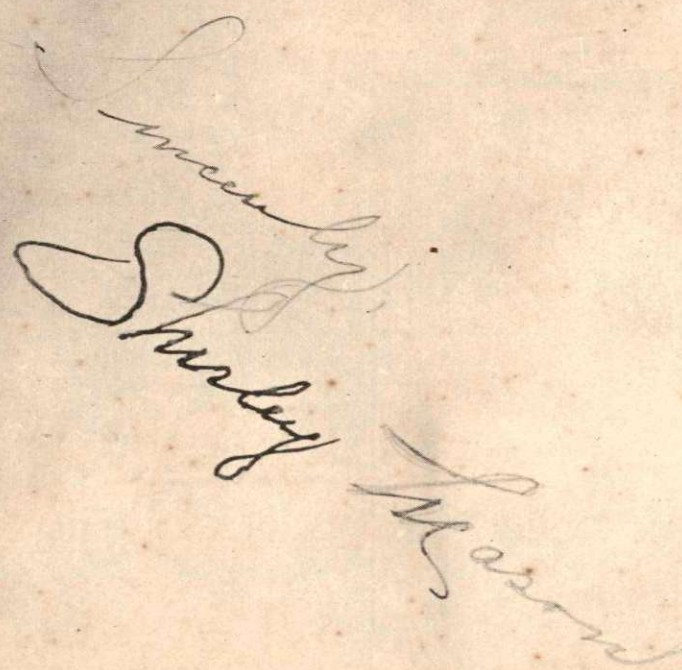 Sincerely,
Shirley
Mason